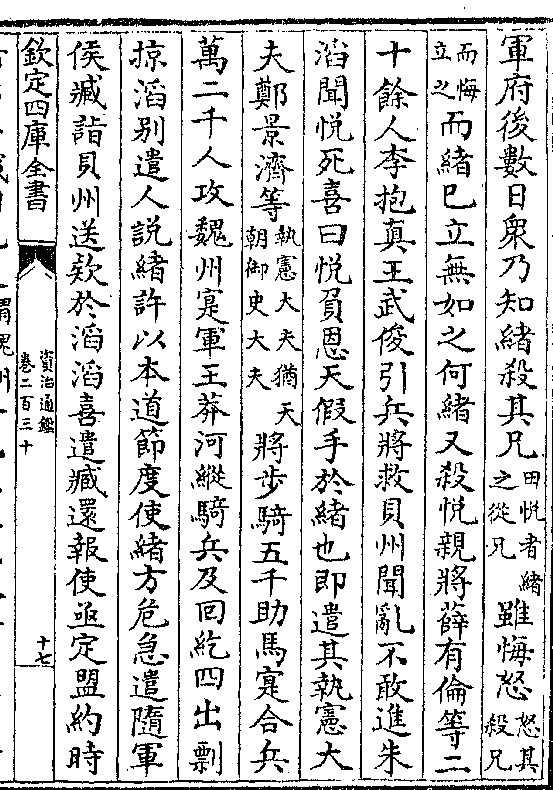 軍府後數日衆乃知緒殺其兄田悦者緒之從兄雖悔怒怒其殺兄
而悔立之而緒已立無如之何緒又殺悅親將薛有倫等二
十餘人李抱真王武俊引兵將救貝州聞亂不敢進朱
滔聞悅死喜曰悅負恩天假手於緒也即遣其執憲大
夫鄭景濟等執憲大夫猶天朝御史大夫將步騎五千助馬寔合兵
萬二千人攻魏州寔軍王莽河縱騎兵及回紇四出剽
掠滔别遣人說緒許以本道節度使緒方危急遣隨軍
侯臧詣貝州送欵於滔滔喜遣臧還報使亟定盟約時
欽定四庫全書
資治通鑑
卷二百三十
十七